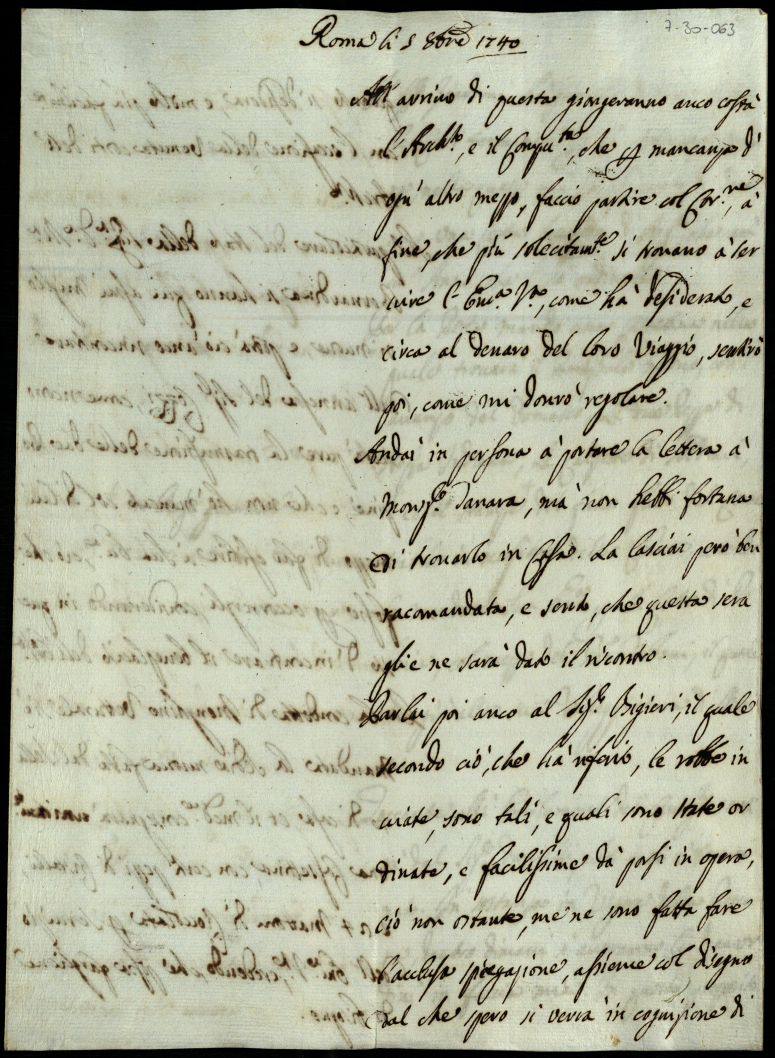 7-30-063
Roma li 5 8bre 1740
All' arrivo di questa giongeranno anco costà
l'Archto, e il Compu.ta, che p mancanza d'
ogn' altro mezzo, faccio partire col Cor.re, à
fine, che più solecitamte si trovano à ser
vire l'Emza Vra, come hà desiderato, e
circa al denaro del loro viaggio, sentirò
poi, come mi dovrò regolare.
Andai in persona à portare la lettera à
Monsre Tanara, mà non hebbi fortuna
di trovarlo in Casa. La lasciai però ben
racomandata, e sento, che questa sera
glie ne sarà dato il riscontro.
Parlai poi anco al Sigre Bigieri, il quale
secondo ciò, che hà riferito, le robbe in
viate, sono tali, e quali sono state or
dinate, e facilissime dà porsi in opera,
ciò non ostante, me ne sono fatta fare
l'acclusa spiegazione, assieme col disegno
dal che spero si verrà in cognizione di